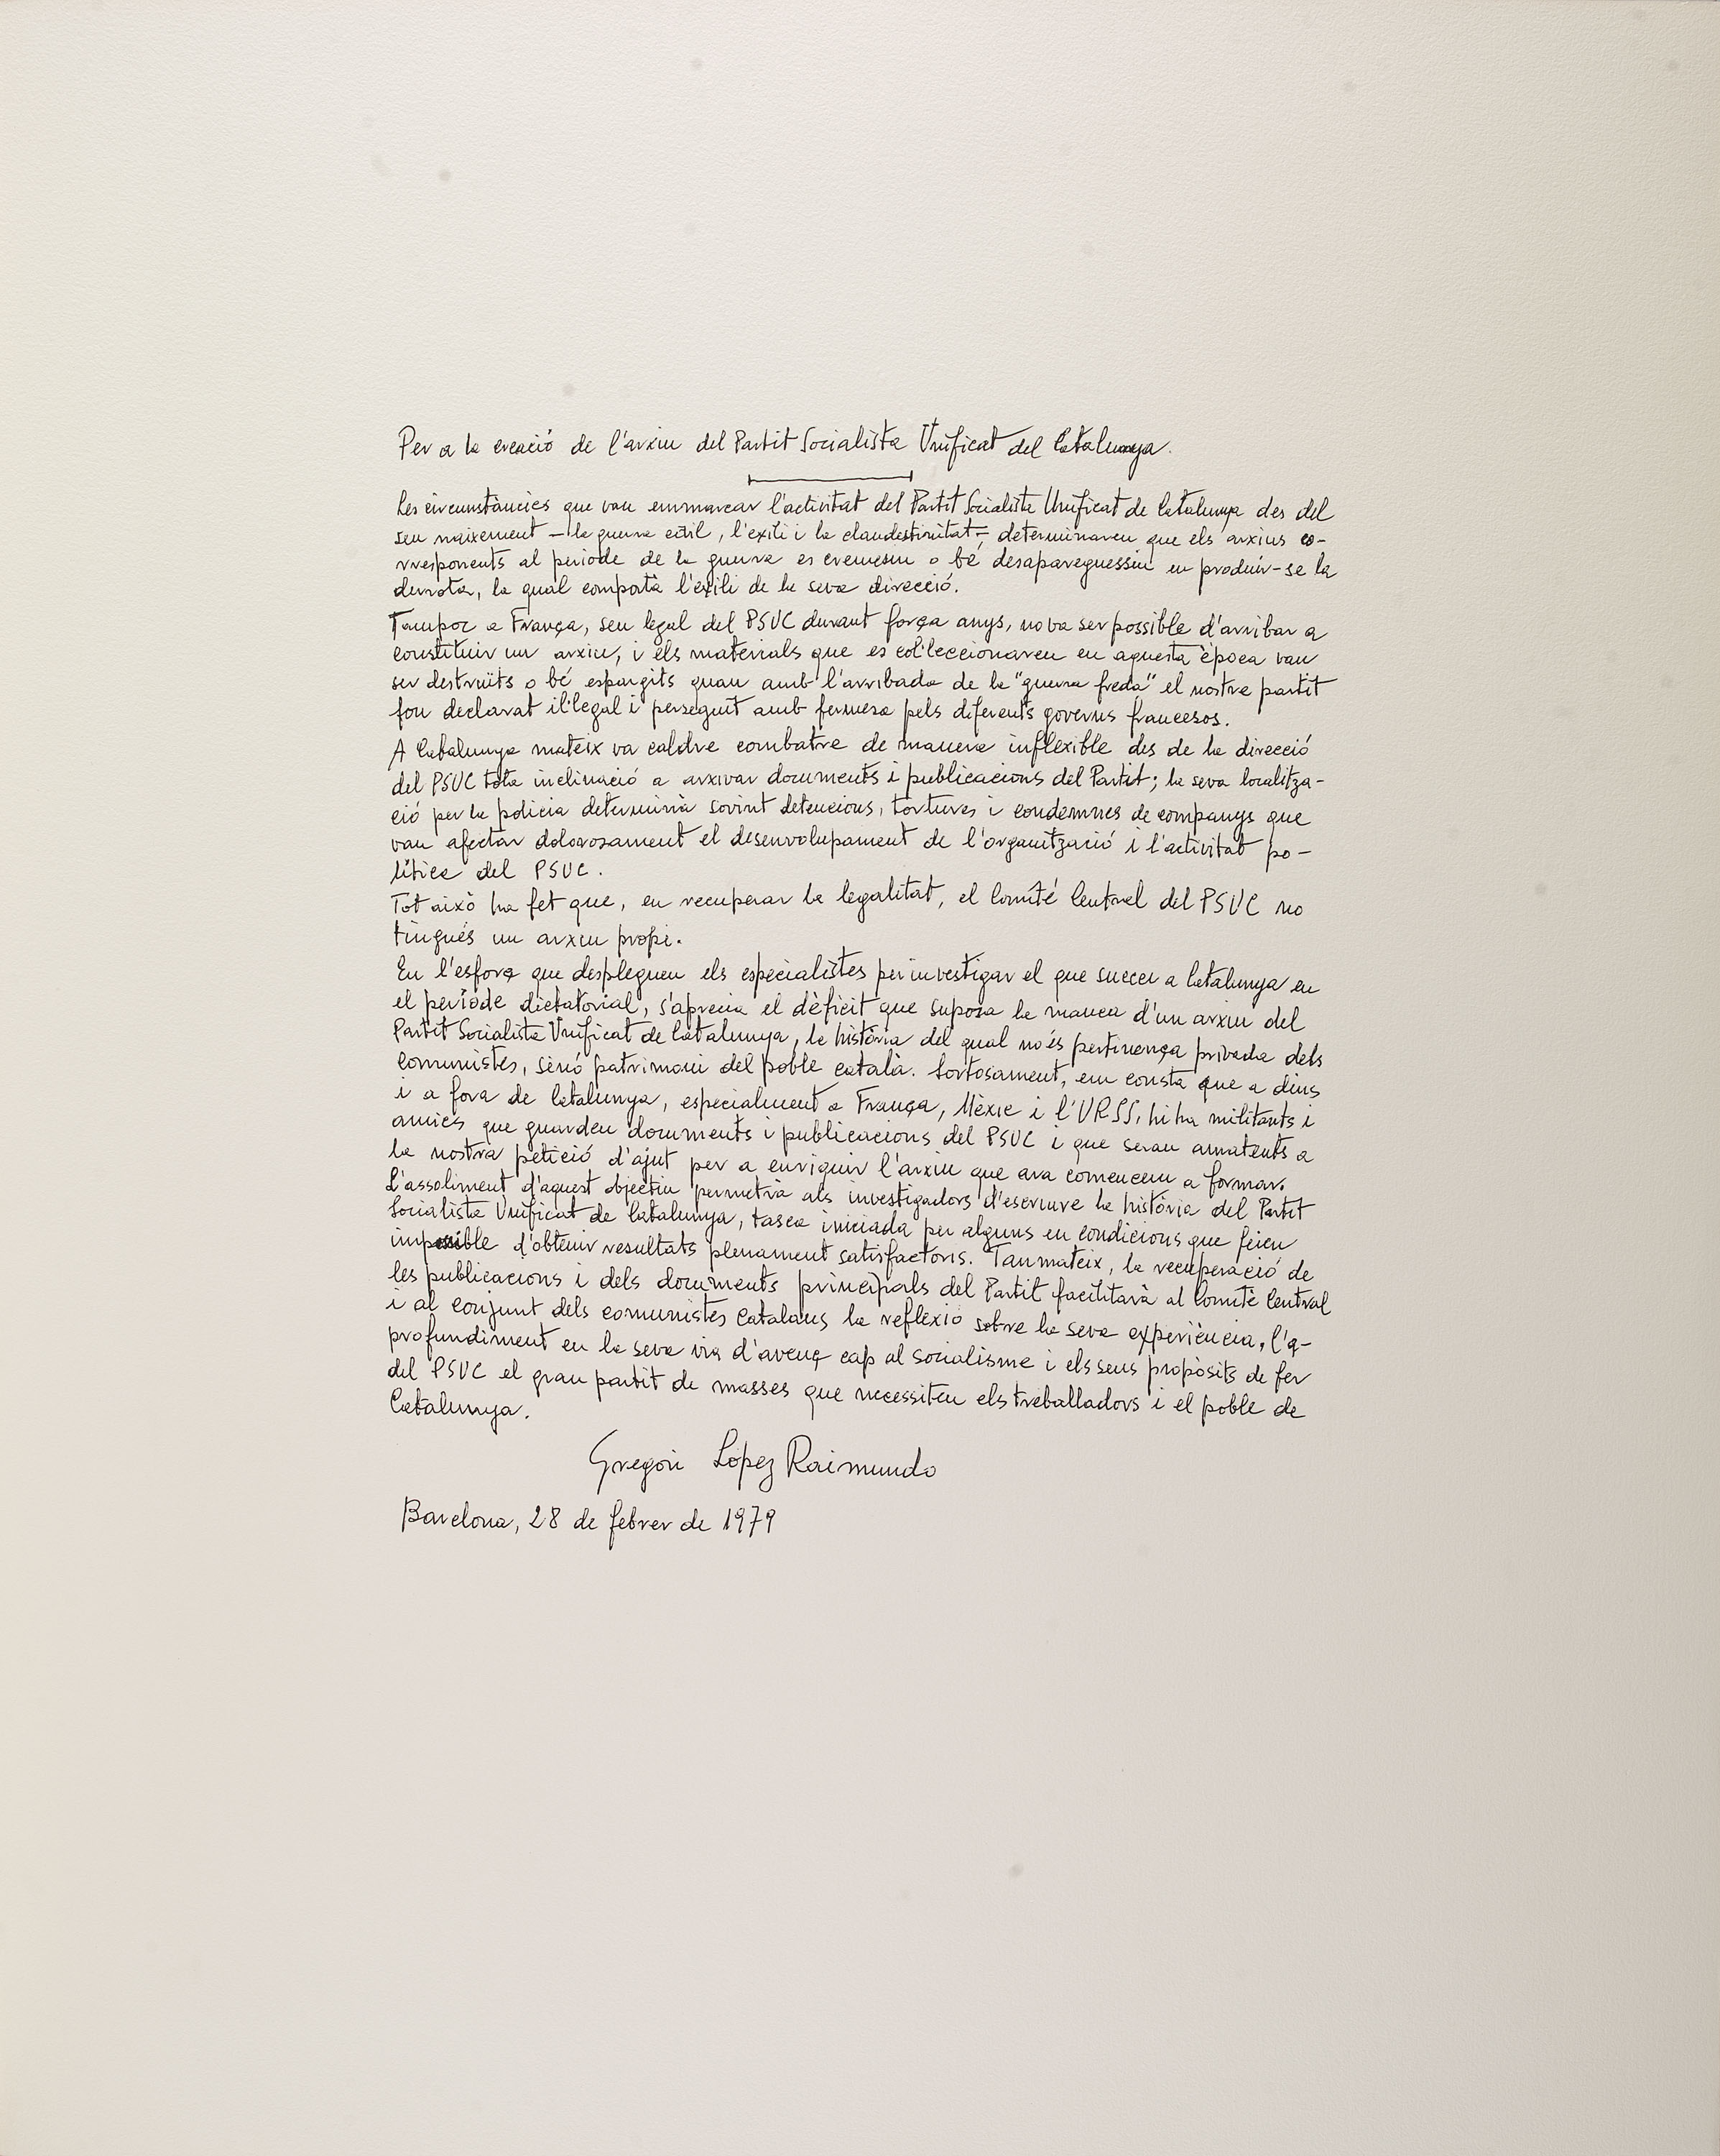 Per a la creació de l'arxiu del Partit Socialista Unificat del Catalunya.
Les circumstàncies que van emmarcar l'activitat del Partit Socialista Unificat de Catalunya des del
seu naixement – la guerra civil, l'exili i la clandestinitat –, determinaren que els arxius co-
rresponents al període de la guerra es cremessin o bé desapareguessin en produir-se la
derrota, la qual comportà l'exili de la seva direcció.
Tampoc a França, seu legal del PSUC durant força anys, no va ser possible d'arribar a
constituir un arxiu, i els materials que es col·leccionaren en aquesta època van
ser destruïts o bé espargits quan amb l'arribada de la "guerra freda" el nostre partit
fou declarat il·legal i perseguit amb fermesa pels diferents governs francesos.
A Catalunya mateix va caldre combatre de manera inflexible des de la direcció
del PSUC tota inclinació a arxivar documents i publicacions del Partit; la seva localitza-
ció per la policia determinà sovint detencions, tortures i condemnes de companys que
van afectar dolorosament el desenvolupament de l'organització i l'activitat po-
lítica del PSUC.
Tot això ha fet que, en recuperar la legalitat, el Comité Central del PSUC no
tingués un arxiu propi.
En l'esforç que despleguen els especialistes per investigar el que succeí a Catalunya en
el període dictatorial, s'aprecia el dèficit que suposa la manca d'un arxiu del
Partit Socialista Unificat de Catalunya, la història del qual no és pertinença privada dels
comunistes, sinó patrimoni del poble català. Sortosament, em consta que a dins
i a fora de Catalunya, especialment a França, Mèxic i l'URSS, hi ha militants i
amics que guarden documents i publicacions del PSUC i que seran amatents a
la nostra petició d'ajut per a enriquir l'arxiu que ara comencem a formar.
L'assoliment d'aquest objectiu permetrà als investigadors d'escriure la història del Partit
Socialista Unificat de Catalunya, tasca iniciada per alguns en condicions que feien
impossible d'obtenir resultats plenament satisfactoris. Tanmateix, la recuperació de
les publicacions i dels documents principals del Partit facilitarà al Comitè Central
i al conjunt dels comunistes catalans la reflexió sobre la seva experiència, l'a-
profundiment en la seva via d'avenç cap al socialisme i els seus propòsits de fer
del PSUC el gran partit de masses que necessiten els treballadors i el poble de
Catalunya.
Gregori López Raimundo
Barcelona, 28 de febrer de 1979